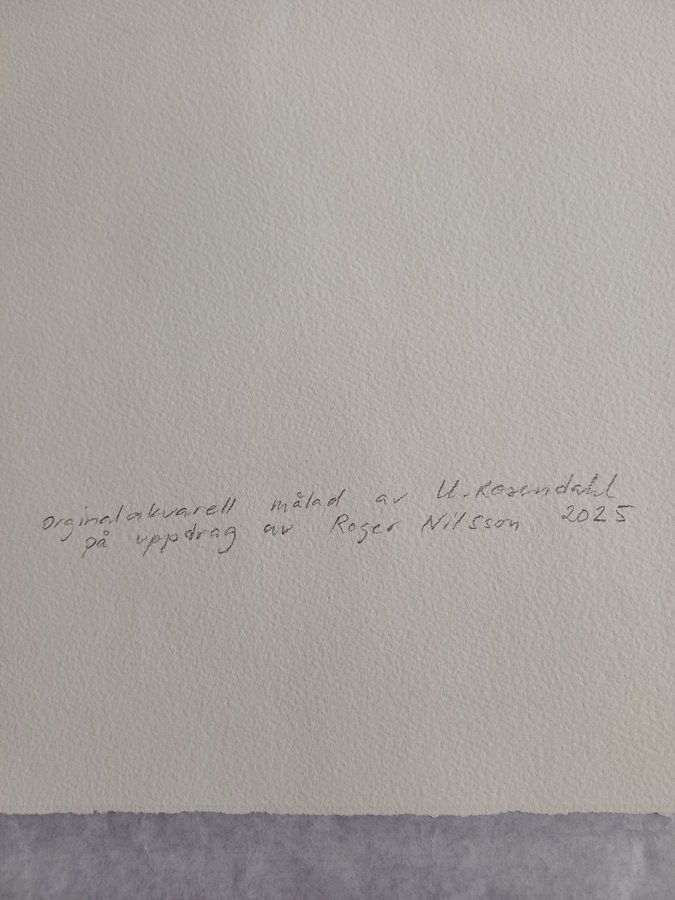 Orginalakvarell målad av U. Rosendahl
på uppdrag av Roger Nilsson 2025